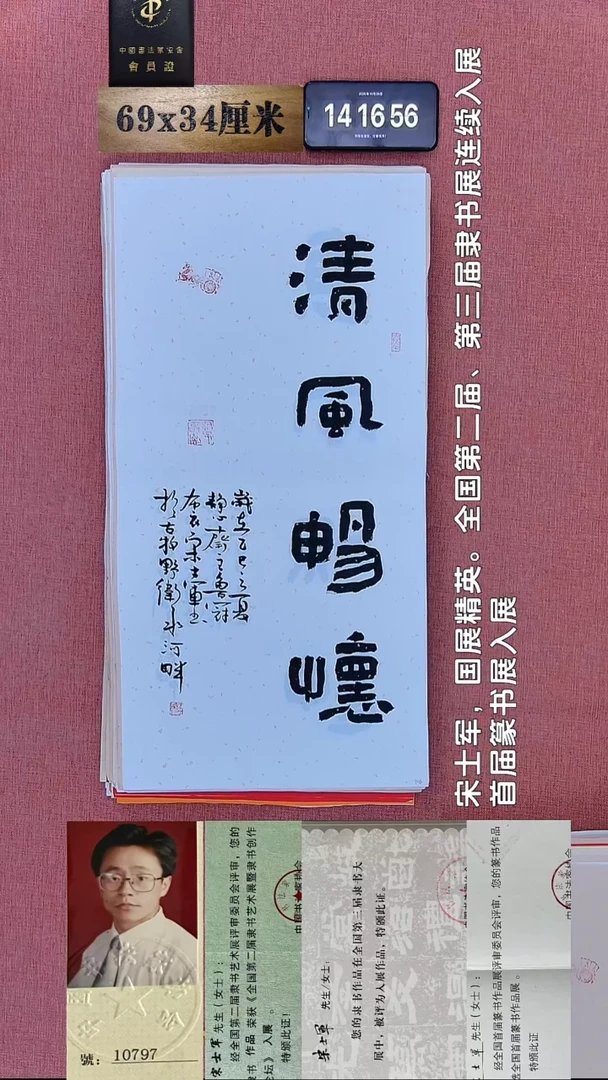 中國書法家協會
會員證
69x34厘米
14 16 56
清風暢懷
歲在乙巳之夏
靜心齋主魯冠
布衣宋士軍書
於古牧野衛水河畔
宋士军，国展精英。全国第二届、第三届隶书展连续入展
首届篆书展入展
号：10797
宋士军 先生（女士）：
经全国第二届隶书艺术展评审委员会评审，您的
隶书 作品 荣获《全国第二届隶书艺术展暨隶书创作
论坛》入展。
特颁此证！
宋士军 先生/女士：
您的隶书作品在全国第三届隶书大
展中，被评为入展作品，特颁此证。
士军 先生（女士）：
经全国首届篆书作品展评审委员会评审，您的篆书作品
选全国首届篆书作品展。
特颁此证